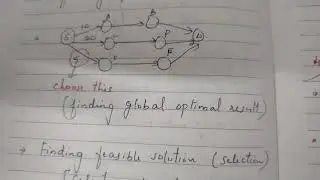 A B
10
S 20 P D
5 F
choose this
(finding global optimal result)
→ Finding feasible solution (selection)